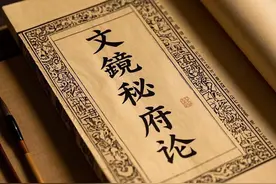 文鏡秘府论